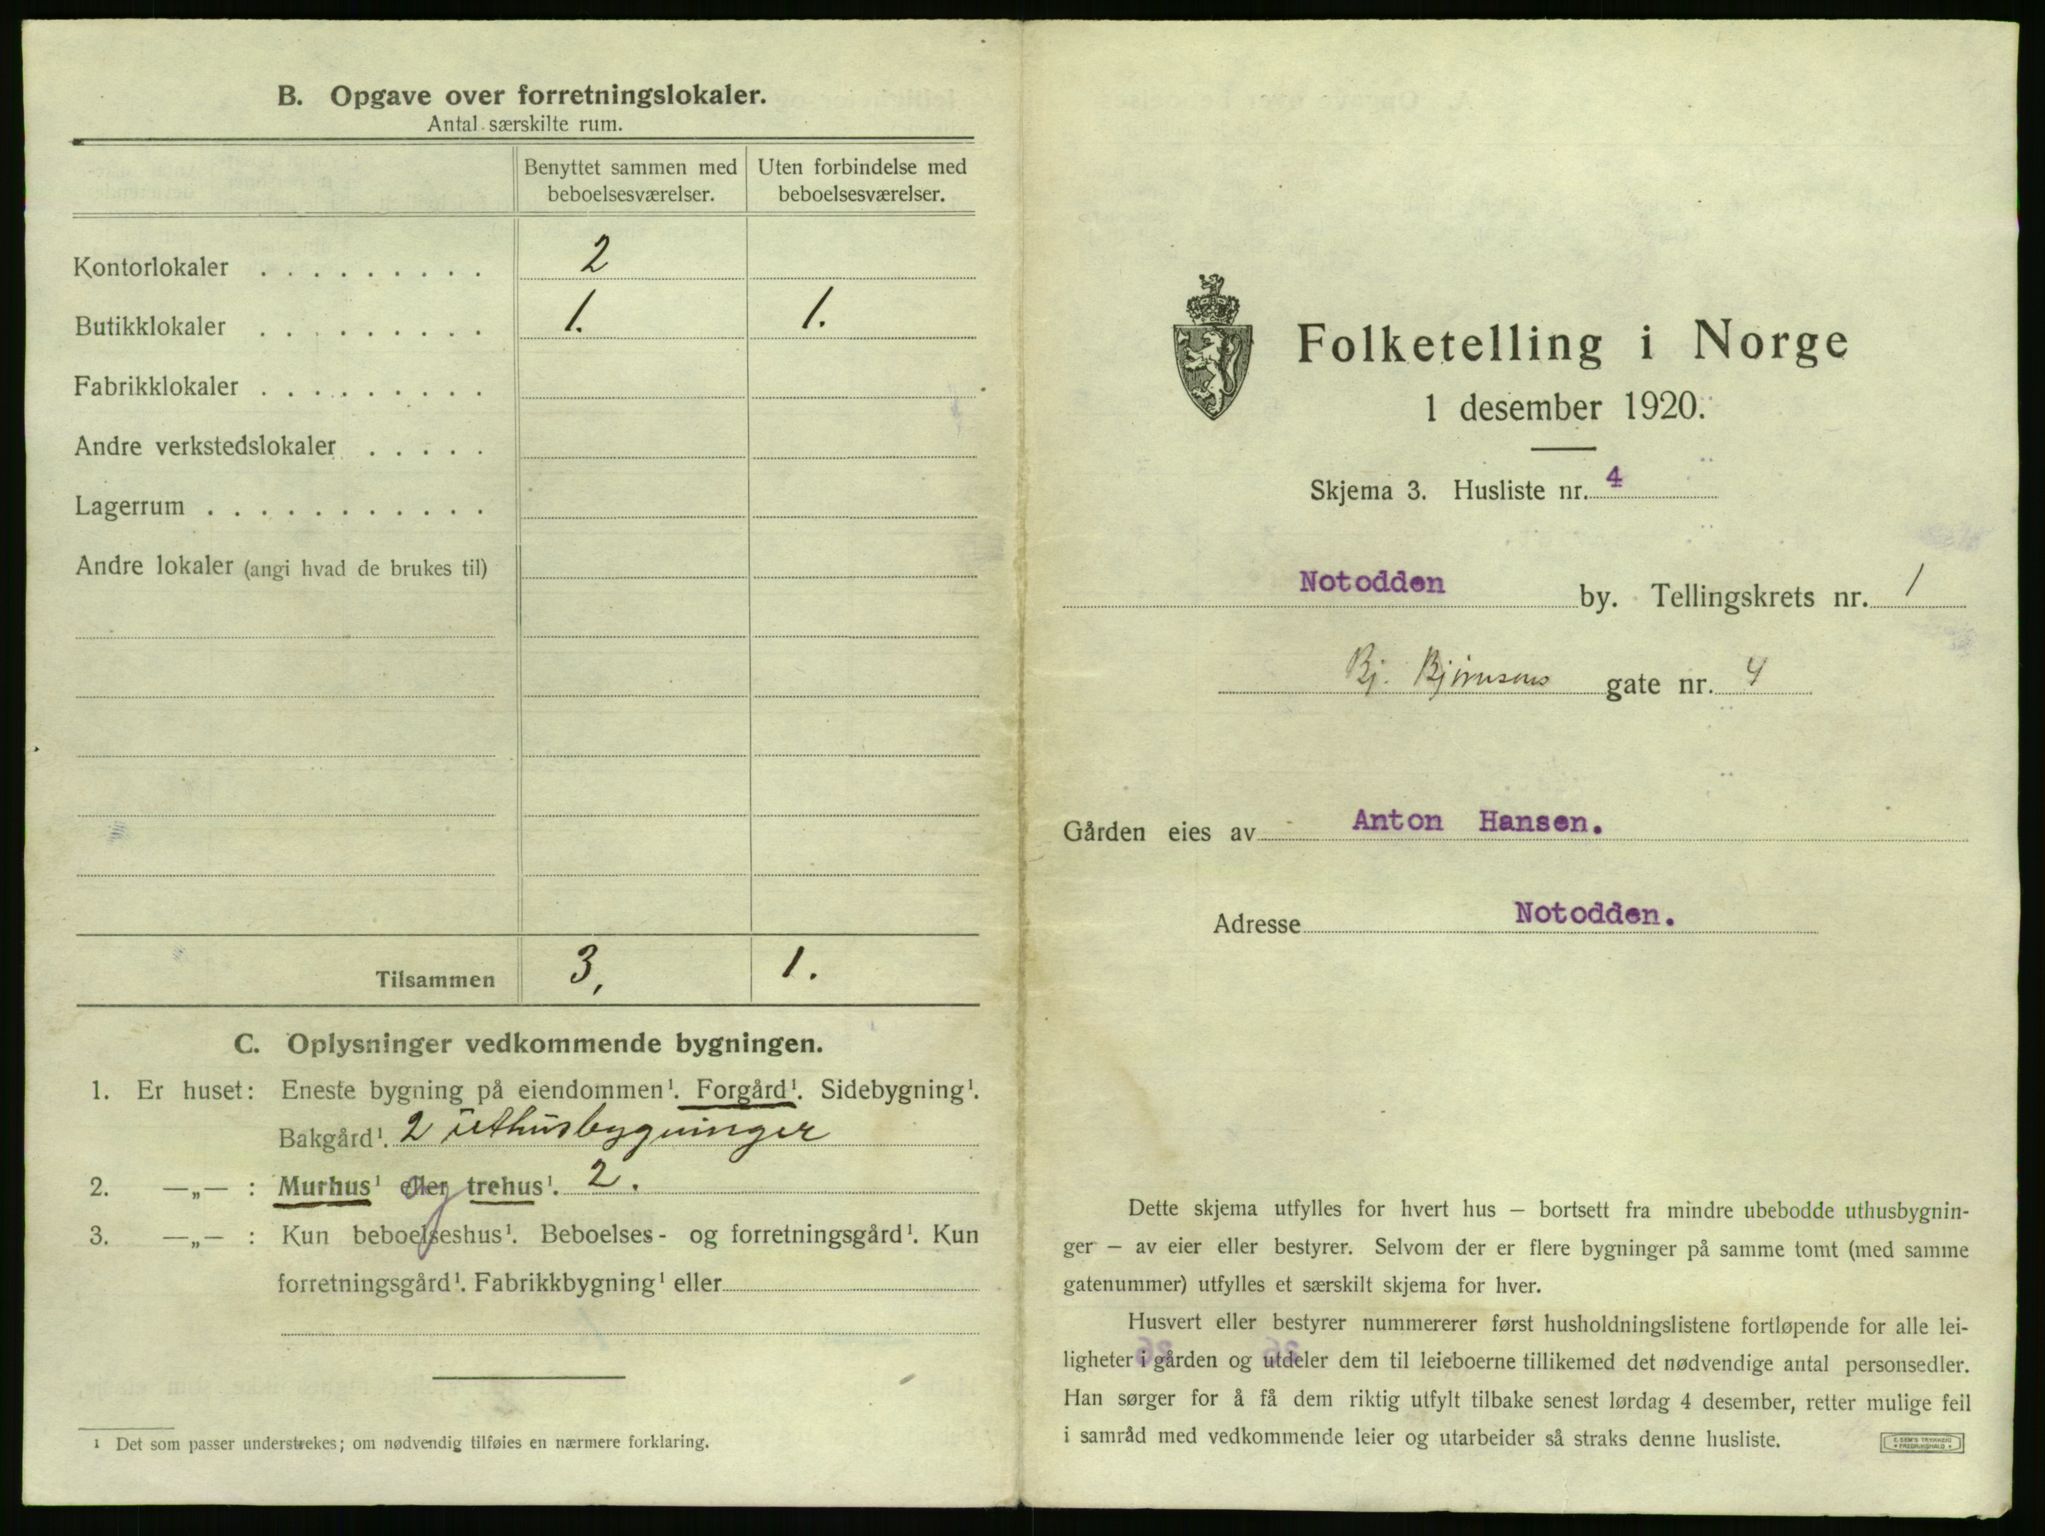 B. Opgave over forretningslokaler.
Antal særskilte rum.
Benyttet sammen med beboelsesværelser.
Uten forbindelse med beboelsesværelser.
Kontorlokaler . . . . . . . . . 2
Butikklokaler . . . . . . . . . 1. 1.
Fabrikklokaler . . . . . . . . .
Andre verkstedslokaler . . . . .
Lagerrum . . . . . . . . . . .
Andre lokaler (angi hvad de brukes til)
Tilsammen 3, 1.
C. Oplysninger vedkommende bygningen.
1. Er huset: Eneste bygning på eiendommen¹. Forgård¹. Sidebygning¹.
Bakgård¹. 2 uthusbygninger
2. —„— : Murhus¹ eller og trehus¹. 2.
3. —„— : Kun beboelseshus¹. Beboelses- og forretningsgård¹. Kun
forretningsgård¹. Fabrikkbygning¹ eller
¹ Det som passer understrekes; om nødvendig tilføies en nærmere forklaring.
Folketelling i Norge
1 desember 1920.
Skjema 3. Husliste nr. 4
Notodden by. Tellingskrets nr. 1
Bj. Bjørnsons gate nr. 4
Gården eies av Anton Hansen.
Adresse Notodden.
Dette skjema utfylles for hvert hus – bortsett fra mindre ubebodde uthusbygnin-
ger – av eier eller bestyrer. Selvom der er flere bygninger på samme tomt (med samme
gatenummer) utfylles et særskilt skjema for hver.
Husvert eller bestyrer nummererer først husholdningslistene fortløpende for alle lei-
ligheter i gården og utdeler dem til leieboerne tillikemed det nødvendige antal personsedler.
Han sørger for å få dem riktig utfylt tilbake senest lørdag 4 desember, retter mulige feil
i samråd med vedkommende leier og utarbeider så straks denne husliste.
E. SEM'S TRYKKERI
FREDRIKSHALD